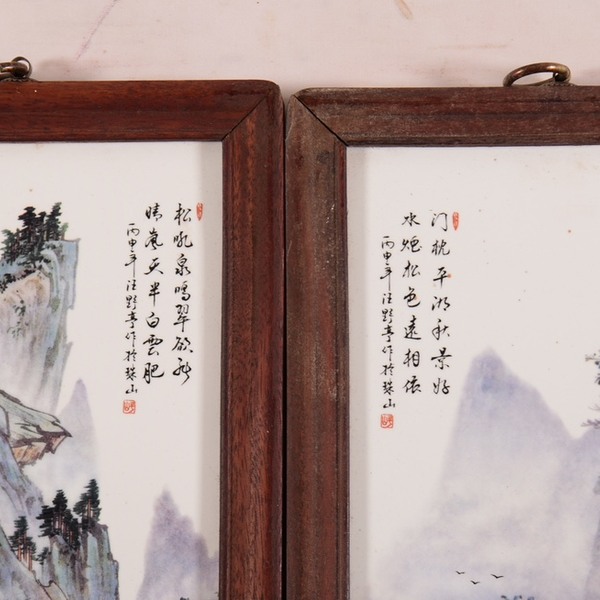 松吼泉鳴翠欲飛
晴嵐天半白雲肥
丙申年汪野亭作於珠山
门枕平湖秋景好
水煙松色遠相依
丙申年汪野亭作於珠山